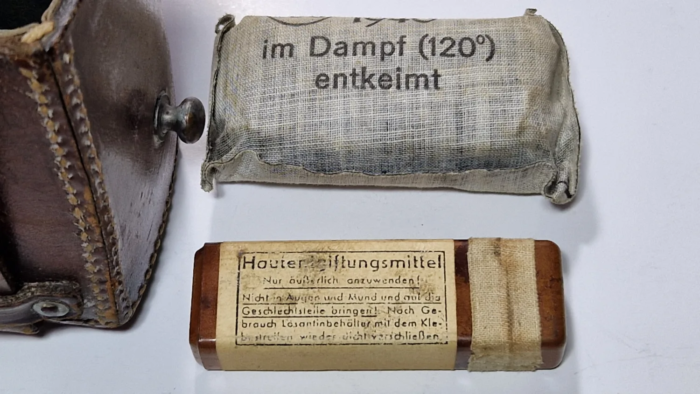 im Dampf (120°)
entkeimt
Hautentgiftungsmittel
Nur äußerlich anzuwenden!
Nicht in Augen und Mund und auf die
Geschlechtsteile bringen! Nach Ge-
brauch Losantinbehälter mit dem Kle-
bestreifen wieder dicht verschließen.